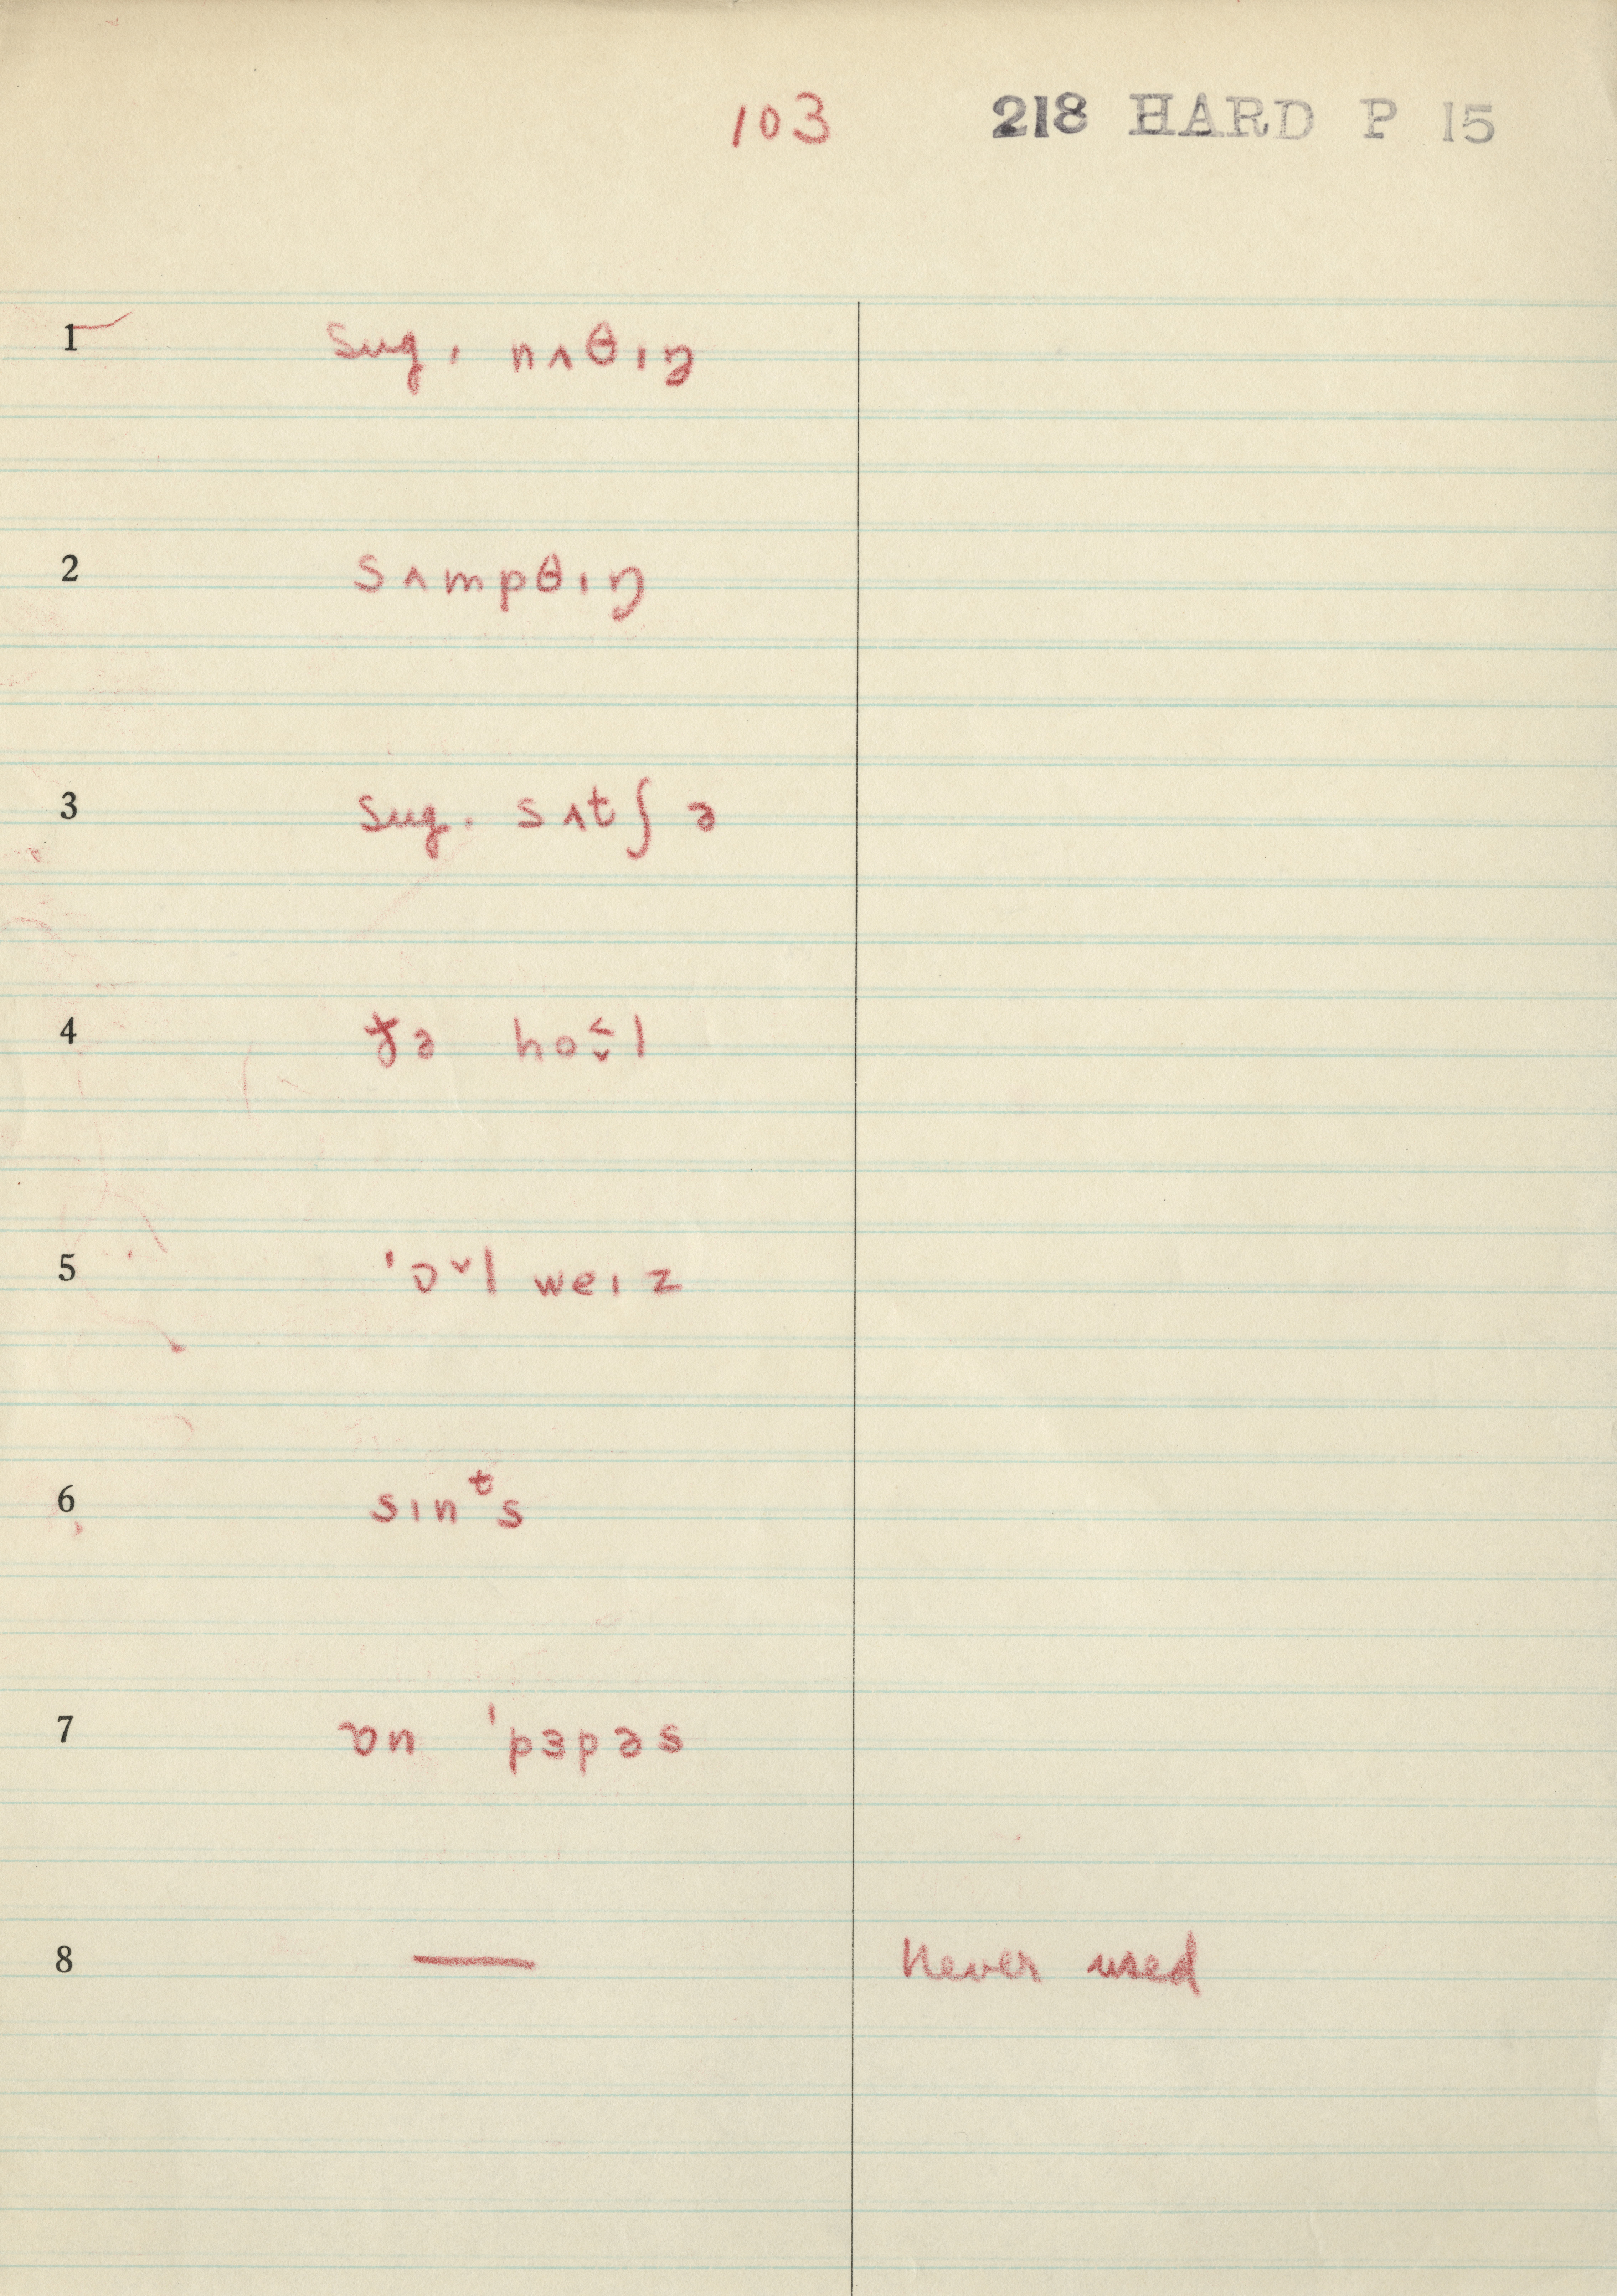 103 218 HARD P 15
1 sug. nʌθɪŋ
2 sʌmpθɪŋ
3 sug. sʌtʃ ə
4 ðə hoʊ̬˂l
5 ˈɔ˅l weɪz
6 sɪnᵗs
7 ɒn ˈpɜpəs
8 — Never used